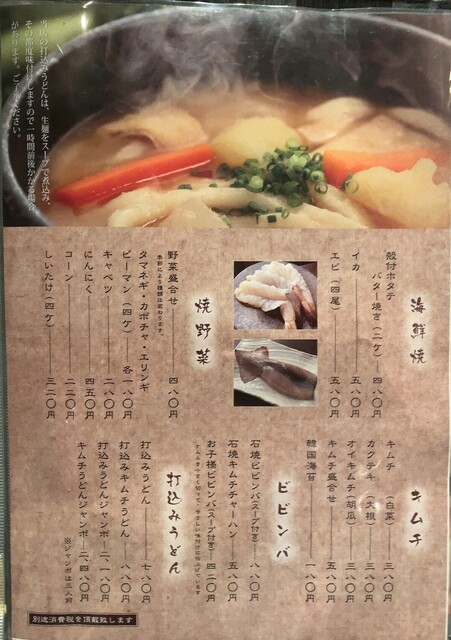 当店の打込みうどんは、生麺をスープで煮込み、
その都度味付けしますので一時間前後かかる場合
があります。ご了承ください。
海鮮焼
殻付ホタテ
バター焼き(二ケ) 四八〇円
イカ 五八〇円
エビ(四尾) 五八〇円
焼野菜
野菜盛合せ 四八〇円
季節により種類は変わります。
タマネギ・カボチャ・エリンギ
ピーマン(四ケ) 各一八〇円
キャベツ 二八〇円
にんにく 四五〇円
コーン 二二〇円
しいたけ(四ケ) 三二〇円
キムチ
キムチ(白菜) 三八〇円
カクテキ(大根) 三八〇円
オイキムチ(胡瓜) 三八〇円
キムチ盛合せ 五八〇円
韓国海苔 一八〇円
ビビンバ
石焼ビビンバ(スープ付き) 八八〇円
石焼キムチチャーハン 五八〇円
お子様ビビンバ(スープ付き) 四二〇円
打込みうどん
打込みうどん 七八〇円
打込みキムチうどん 八八〇円
打込みうどんジャンボ 二、一八〇円
キムチうどんジャンボ 二、四八〇円
※ジャンボは三人前
別途消費税を頂戴致します